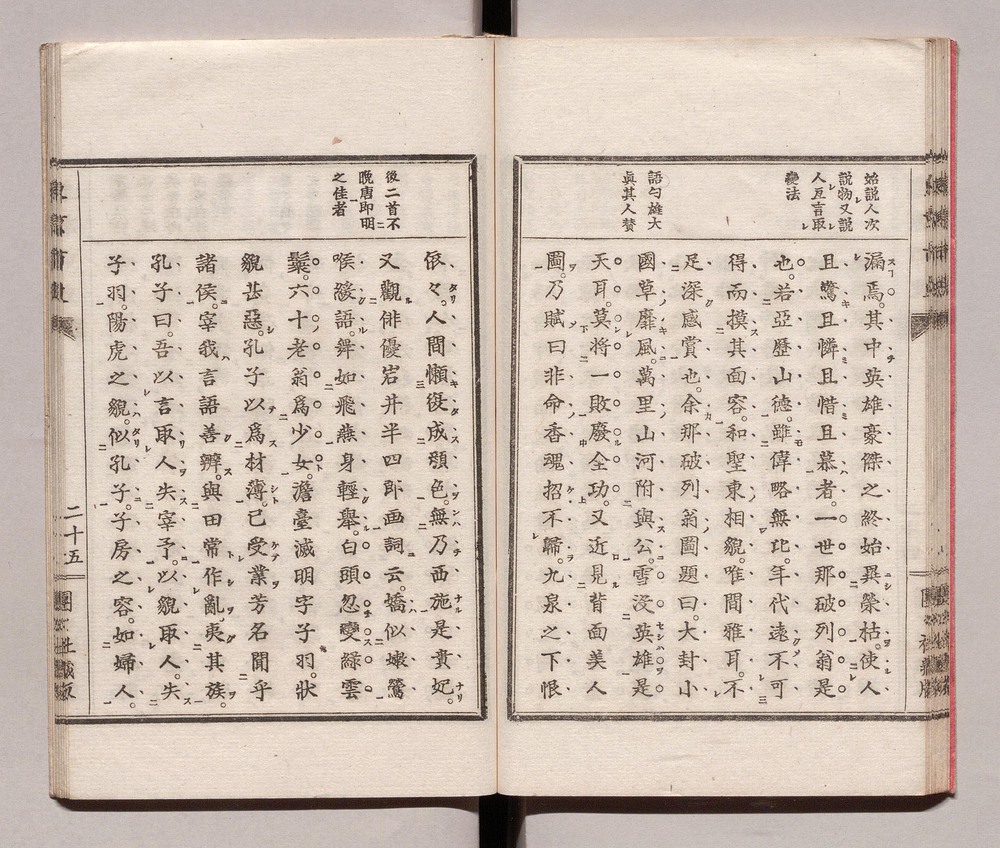 始説人次
説物又説
人互言取
變法
語勾雄大
眞其人贊
漏焉。其中英雄豪傑之終始異榮枯。使人
且驚且憐且惜且慕者。一世那破列翁是
也。若亞歷山德。雖偉略無比。年代遠不可
得而摸其面容。和聖東相貌。唯間雅耳。不
足深感賞也。余那破列翁圖題曰。大封小
國草靡風。萬里山河附與公。雪沒英雄是
天耳。莫將一敗廢全功。又近見背面美人
圖。乃賦曰非命香魂招不歸。九泉之下恨
後二首不
晩唐即明
之佳者
依々。人間懶復成顏色。無乃西施是貴妃。
又觀俳優岩井半四郎画詞云。嬌似嫩鶯
喉緩語。舞如飛燕身輕舉。白頭忽變綠雲
鬟。六十老翁爲少女。澹臺滅明字子羽。狀
貌甚惡。孔子以爲材薄。已受業芳名聞乎
諸侯。宰我言語善辨。與田常作亂夷其族。
孔子曰。吾以言取人失宰予。以貌取人。失
子羽。陽虎之貌。似孔子。子房之容。如婦人。
二十五